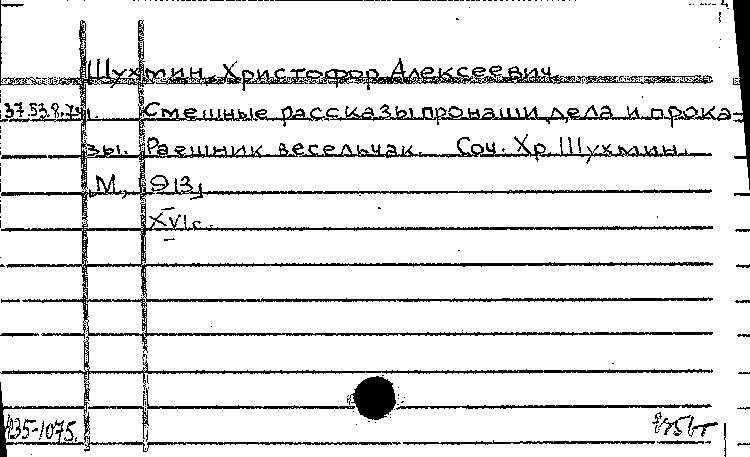 Шухмин, Христофор Алексеевич
37.538.7.41. Смешные рассказы про наши дела и прока-
зы. Раешник весельчак. Соч. Хр. Шухмин.
М, 913,
XVI с.
435-1075.